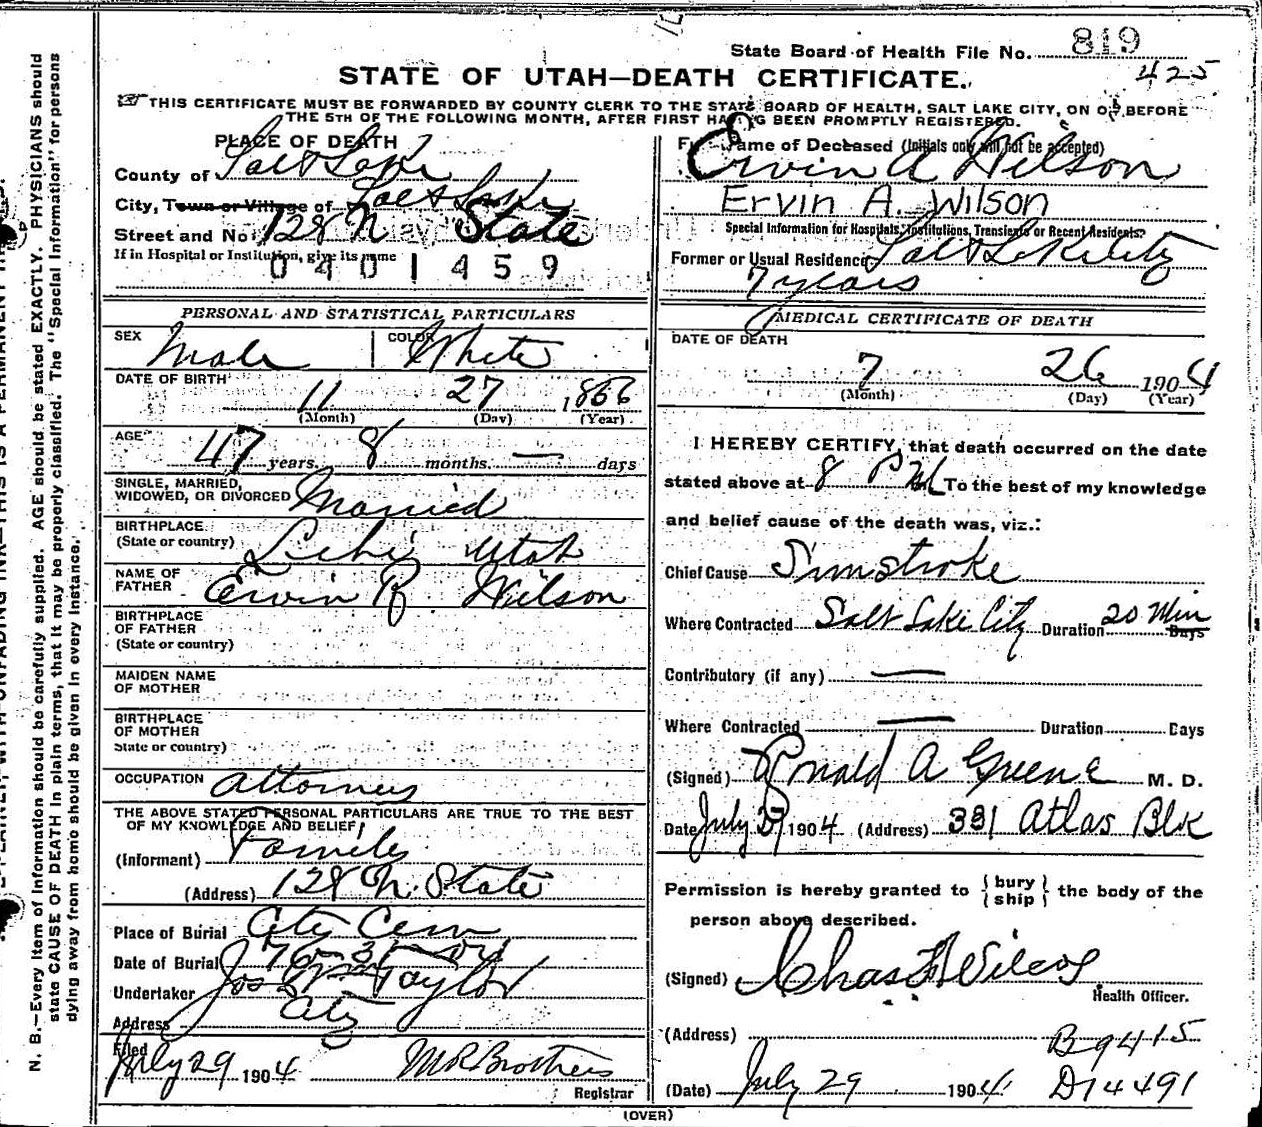 State Board of Health File No. 819
425
STATE OF UTAH—DEATH CERTIFICATE.
THIS CERTIFICATE MUST BE FORWARDED BY COUNTY CLERK TO THE STATE BOARD OF HEALTH, SALT LAKE CITY, ON OR BEFORE
THE 5TH OF THE FOLLOWING MONTH, AFTER FIRST HAVING BEEN PROMPTLY REGISTERED.
PLACE OF DEATH
County of Salt Lake
City, Town or Village of Salt Lake
Street and No. 128 N State
If in Hospital or Institution, give its name
0401459
Full Name of Deceased (Initials only will not be accepted)
Ervin A Wilson
Ervin A. Wilson
Special Information for Hospitals, Institutions, Transients or Recent Residents:
Former or Usual Residence Salt Lake City
7 years
PERSONAL AND STATISTICAL PARTICULARS
SEX Male COLOR White
DATE OF BIRTH
11 27 1856
(Month) (Day) (Year)
AGE 47 years 8 months — days
SINGLE, MARRIED,
WIDOWED, OR DIVORCED Married
BIRTHPLACE
(State or country) Lehi Utah
NAME OF
FATHER Ervin R. Wilson
BIRTHPLACE
OF FATHER
(State or country)
MAIDEN NAME
OF MOTHER
BIRTHPLACE
OF MOTHER
State or country)
OCCUPATION Attorney
THE ABOVE STATED PERSONAL PARTICULARS ARE TRUE TO THE BEST
OF MY KNOWLEDGE AND BELIEF
(Informant) Family
(Address) 128 N. State
Place of Burial City Cem
Date of Burial
Undertaker Jos Wm Taylor
Address City
Filed July 29 1904 M R Brothers
Registrar
MEDICAL CERTIFICATE OF DEATH
DATE OF DEATH
7 26 1904
(Month) (Day) (Year)
I HEREBY CERTIFY, that death occurred on the date
stated above at 8 P M To the best of my knowledge
and belief cause of the death was, viz.:
Chief Cause Sunstroke
Where Contracted Salt Lake City Duration 20 Min Days
Contributory (if any) —
Where Contracted — Duration Days
(Signed) Ronald A Greene M. D.
Date July 29 1904 (Address) 331 Atlas Blk
Permission is hereby granted to { bury ship } the body of the
person above described.
(Signed) Chas F Wilcox
Health Officer.
(Address)
B9415
(Date) July 29 1904. D14491
(OVER)
N. B.—Every item of information should be carefully supplied. AGE should be stated EXACTLY. PHYSICIANS should
state CAUSE OF DEATH in plain terms, that it may be properly classified. The "Special Information" for persons
dying away from home should be given in every instance.